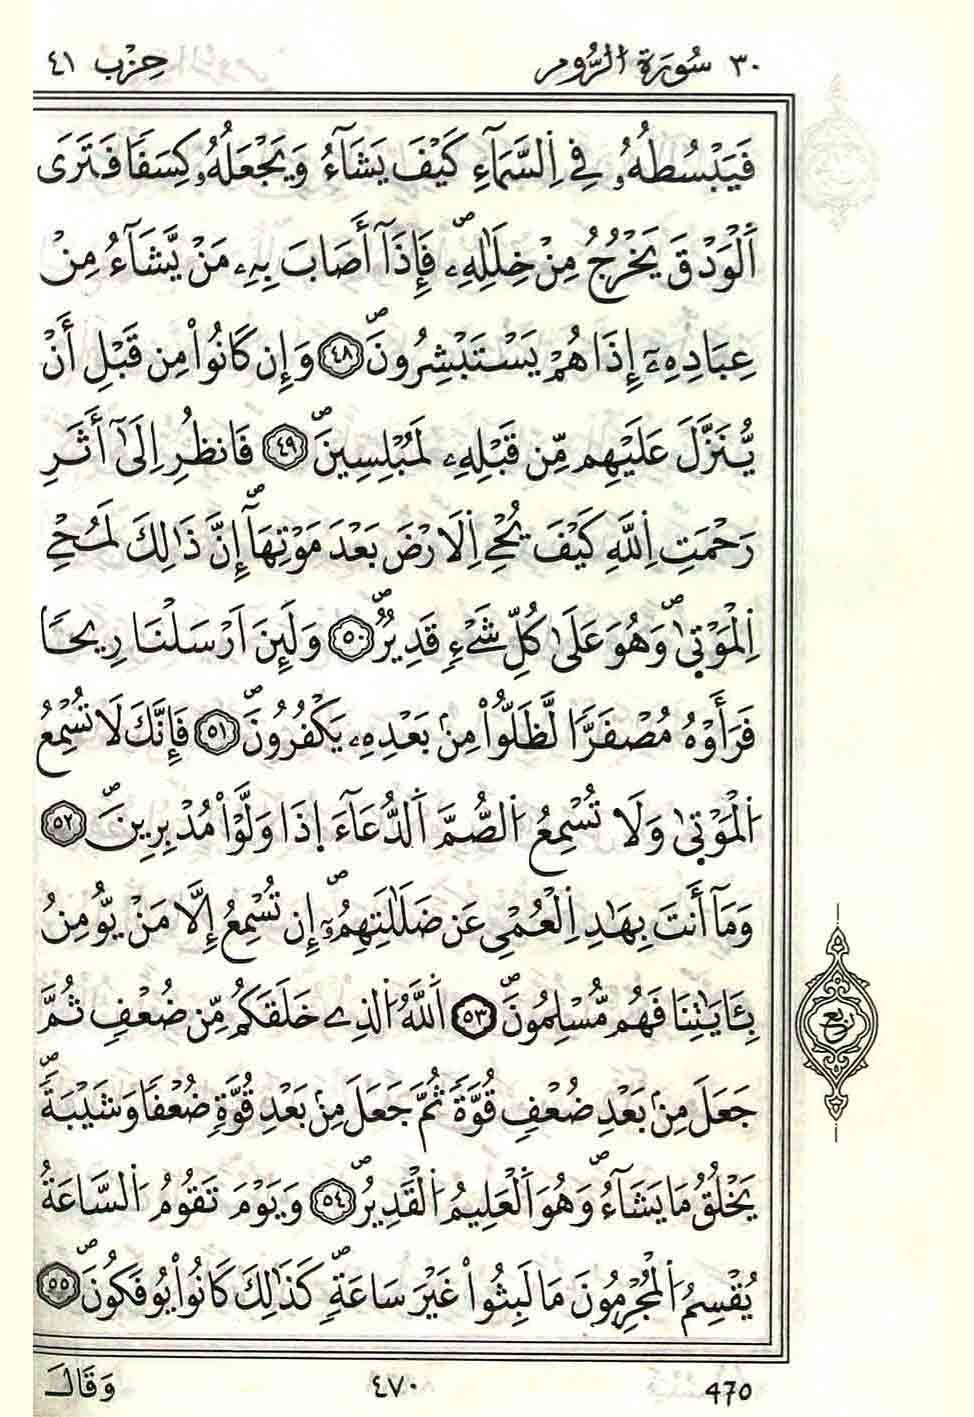 ٣٠ سُورَةُ الرُّومِ حِزْب ٤١
فَيَبْسُطُهُۥ فِے اِ۬لسَّمَآءِ كَيْفَ يَشَآءُ وَيَجْعَلُهُۥ كِسَفاٗ فَتَرَى
اَ۬لْوَدْقَ يَخْرُجُ مِنْ خِلَٰلِهِۦۖ فَإِذَآ أَصَابَ بِهِۦ مَنْ يَّشَآءُ مِنْ
عِبَادِهِۦٓ إِذَا هُمْ يَسْتَبْشِرُونَۖ ٤٨ وَإِن كَانُواْ مِن قَبْلِ أَنْ
يُّنَزَّلَ عَلَيْهِم مِّن قَبْلِهِۦ لَمُبْلِسِينَۖ ٤٩ فَانظُرِ اِلَىٰٓ أَثَرِ
رَحْمَتِ اِ۬للَّهِ كَيْفَ يُحْيِ اِ۬لَارْضَ بَعْدَ مَوْتِهَآۖ إِنَّ ذَٰلِكَ لَمُحْيِ
اِ۬لْمَوْتٜىٰۖ وَهُوَ عَلَىٰ كُلِّ شَےْءٖ قَدِيرٞۖ ٥٠ وَلَئِنَ اَرْسَلْنَا رِيحاٗ
فَرَأَوْهُ مُصْفَرّاٗ لَّظَلُّواْ مِنۢ بَعْدِهِۦ يَكْفُرُونَۖ ٥١ فَإِنَّكَ لَا تُسْمِعُ
اُ۬لْمَوْتٜىٰ وَلَا تُسْمِعُ اُ۬لصُّمَّ اَ۬لدُّعَآءَ اِ۪ذَا وَلَّوْاْ مُدْبِرِينَۖ ٥٢
وَمَآ أَنتَ بِهَٰدِ اِ۬لْعُمْيِ عَن ضَلَٰلَتِهِمُۥٓۖ إِن تُسْمِعُ إِلَّا مَنْ يُّومِنُ
بِـَٔايَٰتِنَا فَهُم مُّسْلِمُونَۖ ٥٣ اَ۬للَّهُ اُ۬لذِے خَلَقَكُم مِّن ضُعْفٖ ثُمَّ
جَعَلَ مِنۢ بَعْدِ ضُعْفٖ قُوَّةٗ ثُمَّ جَعَلَ مِنۢ بَعْدِ قُوَّةٖ ضُعْفاٗ وَشَيْبَةٗۖ
يَخْلُقُ مَا يَشَآءُۖ وَهُوَ اَ۬لْعَلِيمُ اُ۬لْقَدِيرُۖ ٥٤ وَيَوْمَ تَقُومُ اُ۬لسَّاعَةُ
يُقْسِمُ اُ۬لْمُجْرِمُونَ مَا لَبِثُواْ غَيْرَ سَاعَةٖۖ كَذَٰلِكَ كَانُواْ يُوفَكُونَۖ ٥٥
ربع
470 ٤٧٠ وَقَالَ